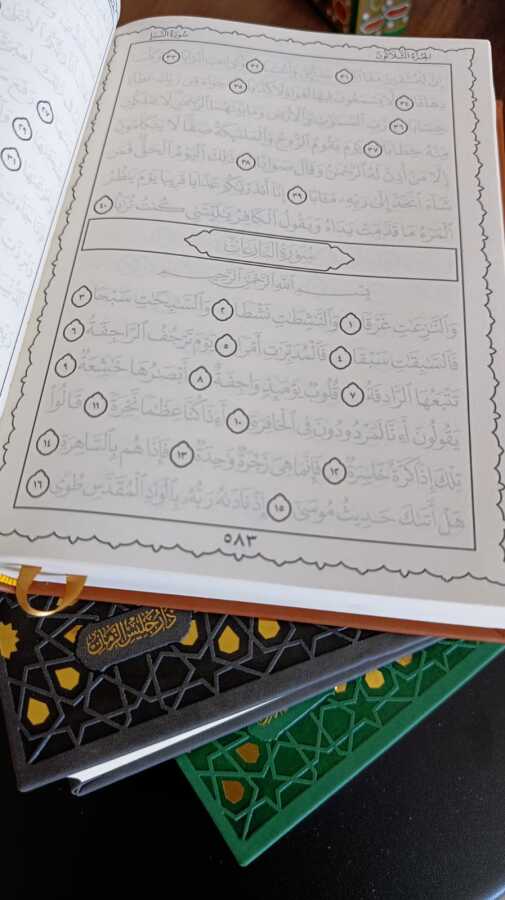 الجزء الثلاثون
سورة النبإ
إِنَّ لِلْمُتَّقِينَ مَفَازًا ٣١ حَدَائِقَ وَأَعْنَابًا ٣٢ وَكَوَاعِبَ أَتْرَابًا ٣٣ وَكَأْسًا
دِهَاقًا ٣٤ لَّا يَسْمَعُونَ فِيهَا لَغْوًا وَلَا كِذَّابًا ٣٥ جَزَاءً مِّن رَّبِّكَ عَطَاءً
حِسَابًا ٣٦ رَّبِّ السَّمَاوَاتِ وَالْأَرْضِ وَمَا بَيْنَهُمَا الرَّحْمَٰنِ لَا يَمْلِكُونَ
مِنْهُ خِطَابًا ٣٧ يَوْمَ يَقُومُ الرُّوحُ وَالْمَلَائِكَةُ صَفًّا لَّا يَتَكَلَّمُونَ
إِلَّا مَنْ أَذِنَ لَهُ الرَّحْمَٰنُ وَقَالَ صَوَابًا ٣٨ ذَٰلِكَ الْيَوْمُ الْحَقُّ فَمَن
شَاءَ اتَّخَذَ إِلَىٰ رَبِّهِ مَآبًا ٣٩ إِنَّا أَنذَرْنَاكُمْ عَذَابًا قَرِيبًا يَوْمَ يَنظُرُ
الْمَرْءُ مَا قَدَّمَتْ يَدَاهُ وَيَقُولُ الْكَافِرُ يَا لَيْتَنِي كُنتُ تُرَابًا ٤٠
سُورَةُ النَّازِعَاتِ
بِسْمِ اللَّهِ الرَّحْمَٰنِ الرَّحِيمِ
وَالنَّازِعَاتِ غَرْقًا ١ وَالنَّاشِطَاتِ نَشْطًا ٢ وَالسَّابِحَاتِ سَبْحًا ٣
فَالسَّابِقَاتِ سَبْقًا ٤ فَالْمُدَبِّرَاتِ أَمْرًا ٥ يَوْمَ تَرْجُفُ الرَّاجِفَةُ ٦
تَتْبَعُهَا الرَّادِفَةُ ٧ قُلُوبٌ يَوْمَئِذٍ وَاجِفَةٌ ٨ أَبْصَارُهَا خَاشِعَةٌ ٩
يَقُولُونَ أَءِنَّا لَمَرْدُودُونَ فِي الْحَافِرَةِ ١٠ أَءِذَا كُنَّا عِظَامًا نَّخِرَةً ١١ قَالُوا
تِلْكَ إِذًا كَرَّةٌ خَاسِرَةٌ ١٢ فَإِنَّمَا هِيَ زَجْرَةٌ وَاحِدَةٌ ١٣ فَإِذَا هُم بِالسَّاهِرَةِ ١٤
هَلْ أَتَاكَ حَدِيثُ مُوسَىٰ ١٥ إِذْ نَادَاهُ رَبُّهُ بِالْوَادِ الْمُقَدَّسِ طُوًى ١٦
٥٨٣